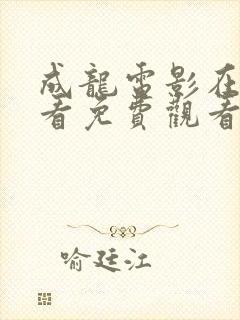 成龍雷影在
看免費觀看
喻廷江